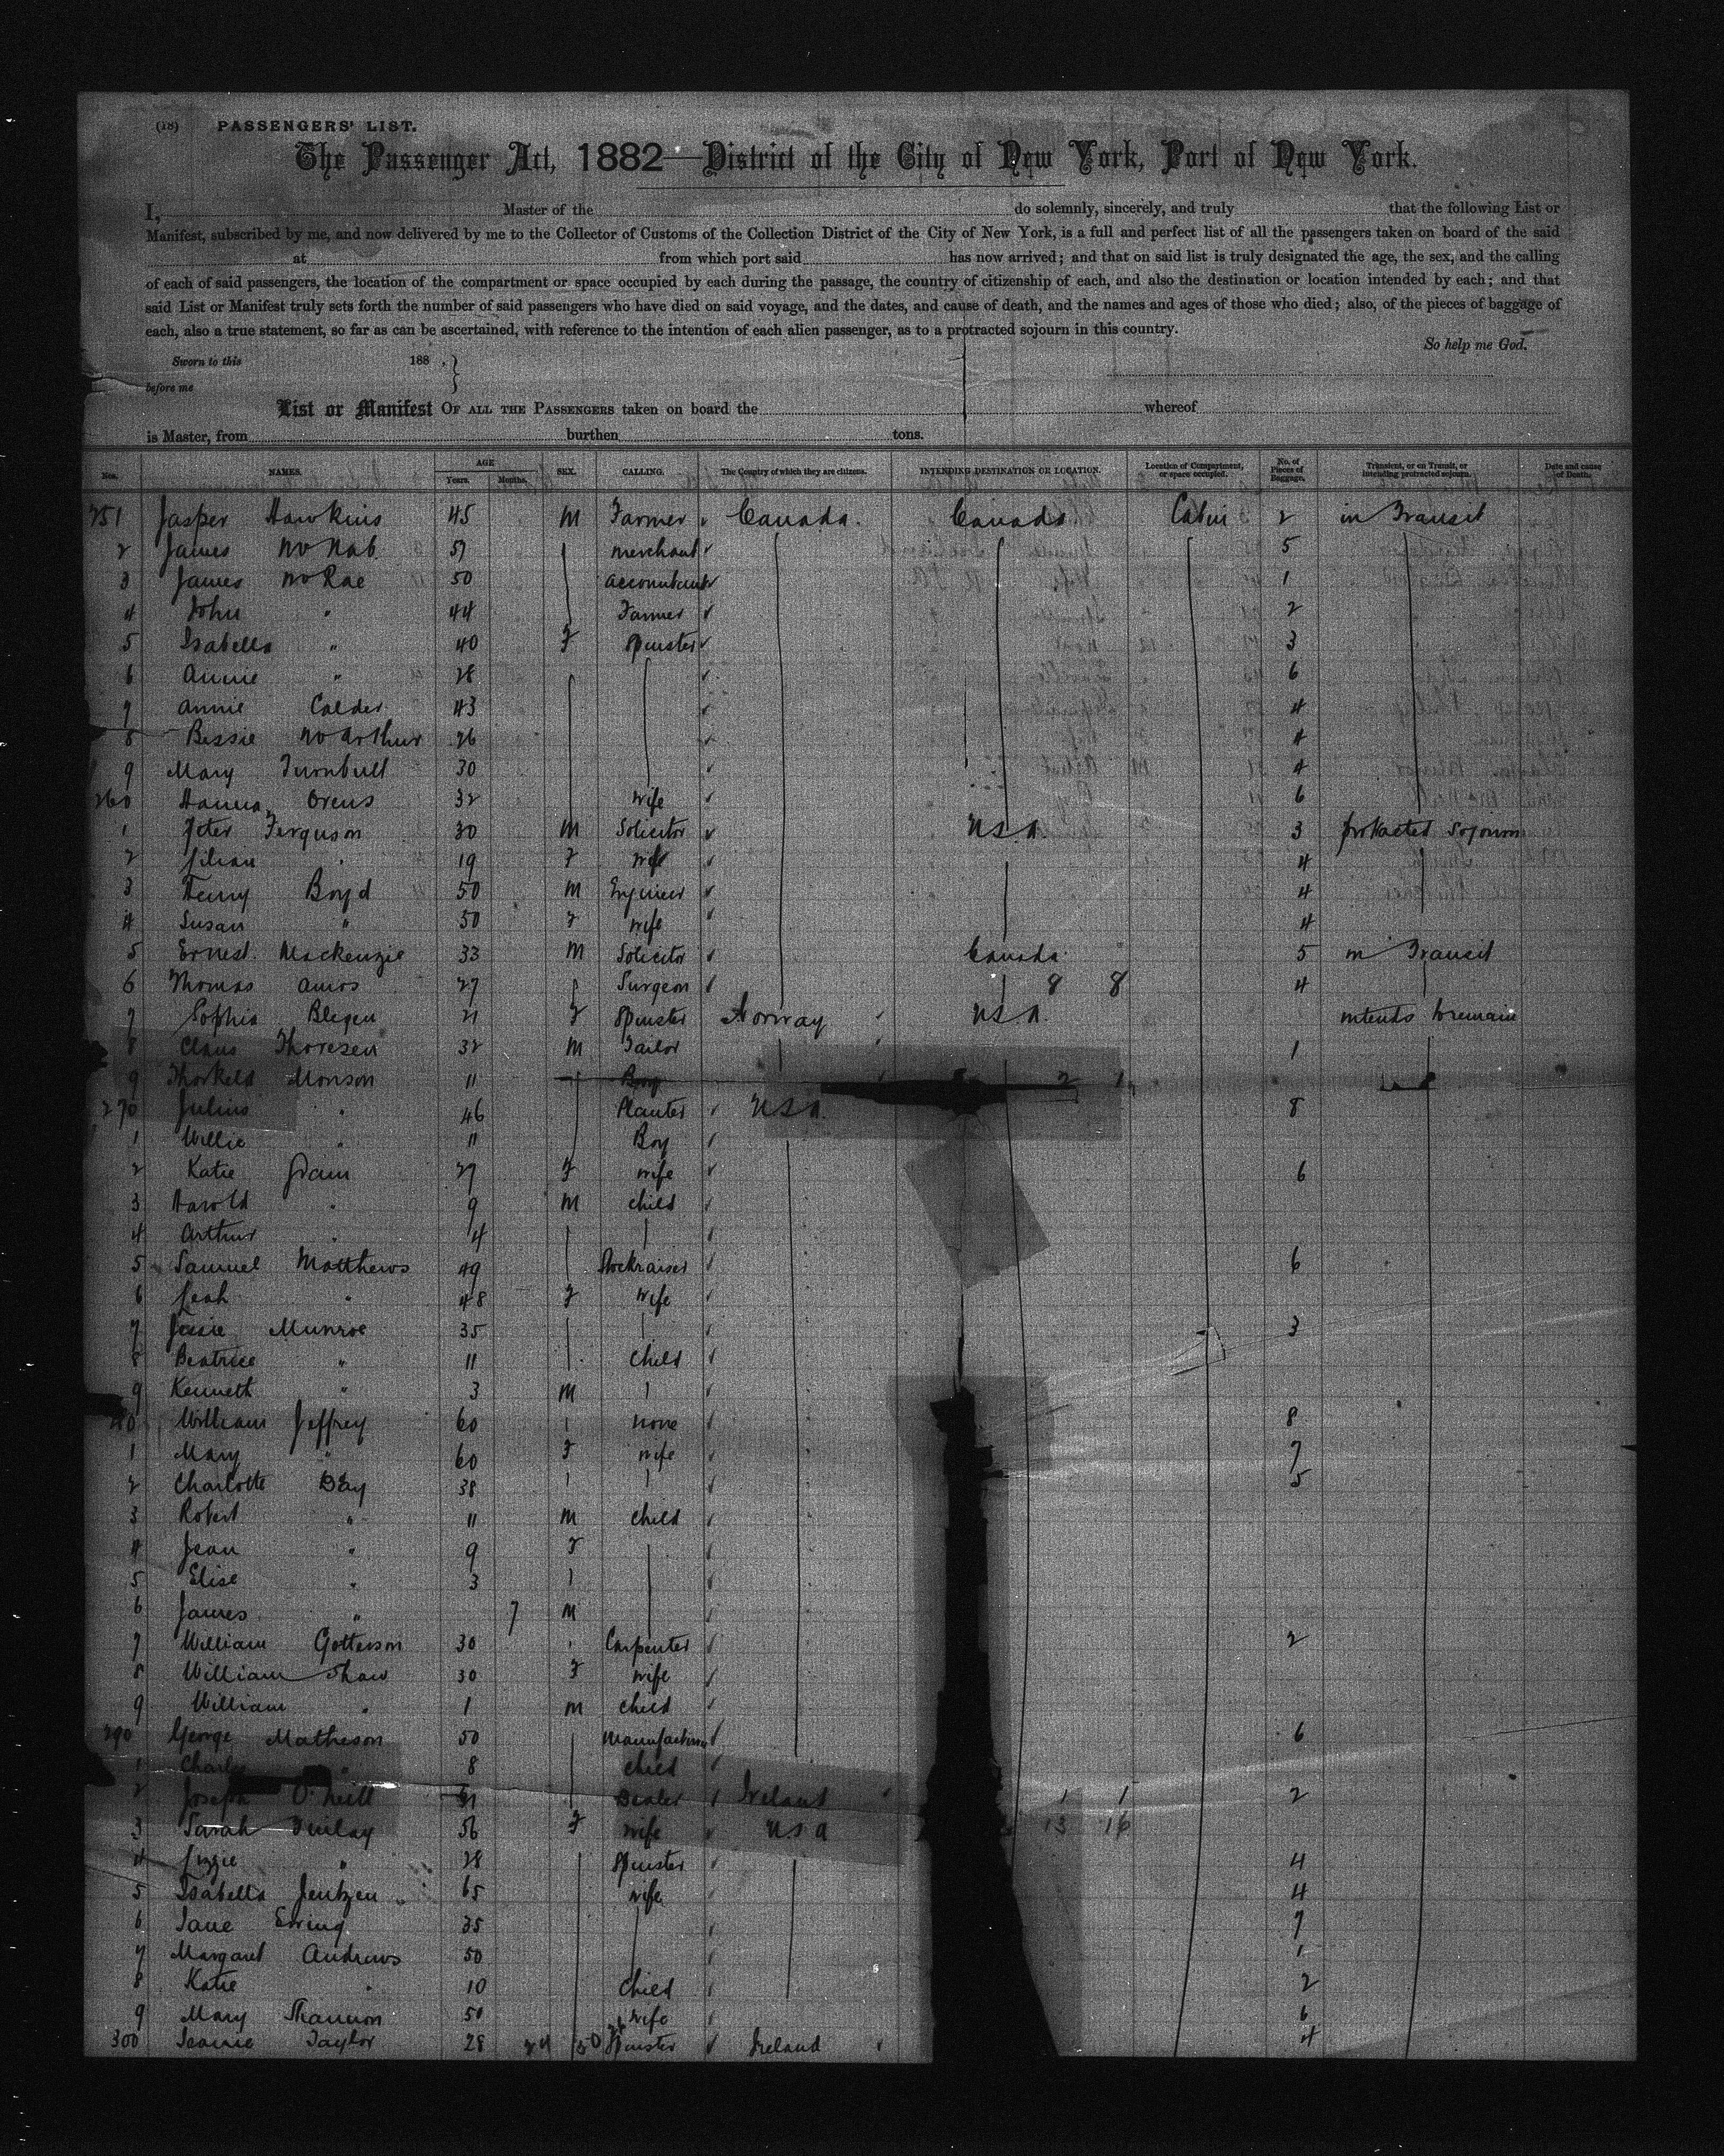 (18) PASSENGERS' LIST.
The Passenger Act, 1882—District of the City of New York, Port of New York.
I, Master of the do solemnly, sincerely, and truly that the following List or
Manifest, subscribed by me, and now delivered by me to the Collector of Customs of the Collection District of the City of New York, is a full and perfect list of all the passengers taken on board of the said
at from which port said has now arrived; and that on said list is truly designated the age, the sex, and the calling
of each of said passengers, the location of the compartment or space occupied by each during the passage, the country of citizenship of each, and also the destination or location intended by each; and that
said List or Manifest truly sets forth the number of said passengers who have died on said voyage, and the dates, and cause of death, and the names and ages of those who died; also, of the pieces of baggage of
each, also a true statement, so far as can be ascertained, with reference to the intention of each alien passenger, as to a protracted sojourn in this country.
So help me God.
Sworn to this 188 . }
before me
List or Manifest OF ALL THE PASSENGERS taken on board the whereof
is Master, from burthen tons.
Nos. NAMES. AGE Years. Months. SEX. CALLING. The Country of which they are citizens. INTENDING DESTINATION OR LOCATION. Location of Compartment, or space occupied. No. of Pieces of Baggage. Transient, or on Transit, or intending protracted sojourn. Date and cause of Death.
251 Jasper Hawkins 45 M Farmer Canada. Canada Cabin 2 in Transit
2 James McNab 57 merchant 5
3 James McRae 50 accountant 1
4 John " 44 Farmer 2
5 Isabella " 40 F Spinster 3
6 Annie " 28 6
7 Annie Calder 43 4
8 Bessie McArthur 26 4
9 Mary Turnbull 30 4
260 Hanna 32 wife 6
1 Peter Ferguson 30 M Solicitor U.S.A. 3 protracted sojourn
2 Lilian " 19 F wife 4
3 Henry Boyd 50 M Engineer 4
4 Susan " 50 F wife 4
5 Ernest Mackenzie 33 M Solicitor Canada 5 in Transit
6 Thomas Amos 27 Surgeon 8 8 4
7 Sophia Blegen 21 F Spinster Norway U.S.A. intends to remain
8 Claus Thoresen 32 M Tailor 1
9 Thorkeld Monson 11 Boy 2 1
270 Julius " 46 Planter USA. 8
1 Willie " 11 Boy
2 Katie Gram 27 F wife 6
3 Harold " 9 M child
4 Arthur " 4
5 Samuel Matthews 49 Stockraiser 6
6 Leah " 48 F wife
7 Jessie Munroe 35 3
8 Beatrice " 11 child
9 Kenneth " 3 M
280 William Jeffrey 60 none 8
1 Mary " 60 F wife 7
2 Charlotte Day 38 5
3 Robert " 11 M child
4 Jean " 9 F
5 Elise " 3
6 James " 7 M
7 William Gotterson 30 Carpenter 2
8 William Shaw 30 F wife
9 William " 1 M child
290 George Matheson 50 Manufacturer 6
1 Charles " 8 child
2 Joseph O'Neill Dealer Ireland 1 1 2
3 Sarah Finlay 56 F wife USA 13 16
4 Lizzie " 28 Spinster 4
5 Isabella Jentzen 65 wife 4
6 Jane Ewing 35 7
7 Margaret Andrews 50 1
8 Katie " 10 child 2
9 Mary Shannon 50 wife 6
300 Jeanie Taylor 28 Spinster Ireland 4